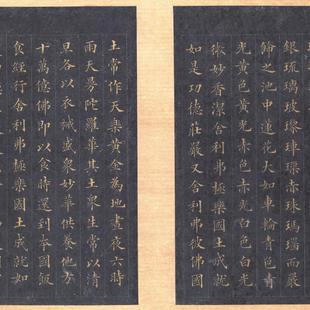 銀琉璃玻瓈硨磲赤珠瑪瑙而嚴
飾之池中蓮花大如車輪青色青
光黃色黃光赤色赤光白色白光
微妙香潔舍利弗極樂國土成就
如是功德莊嚴又舍利弗彼佛國
土常作天樂黃金為地晝夜六時
雨天曼陀羅華其土衆生常以清
旦各以衣祴盛衆妙華供養他方
十萬億佛即以食時還到本國飯
食經行舍利弗極樂國土成就如